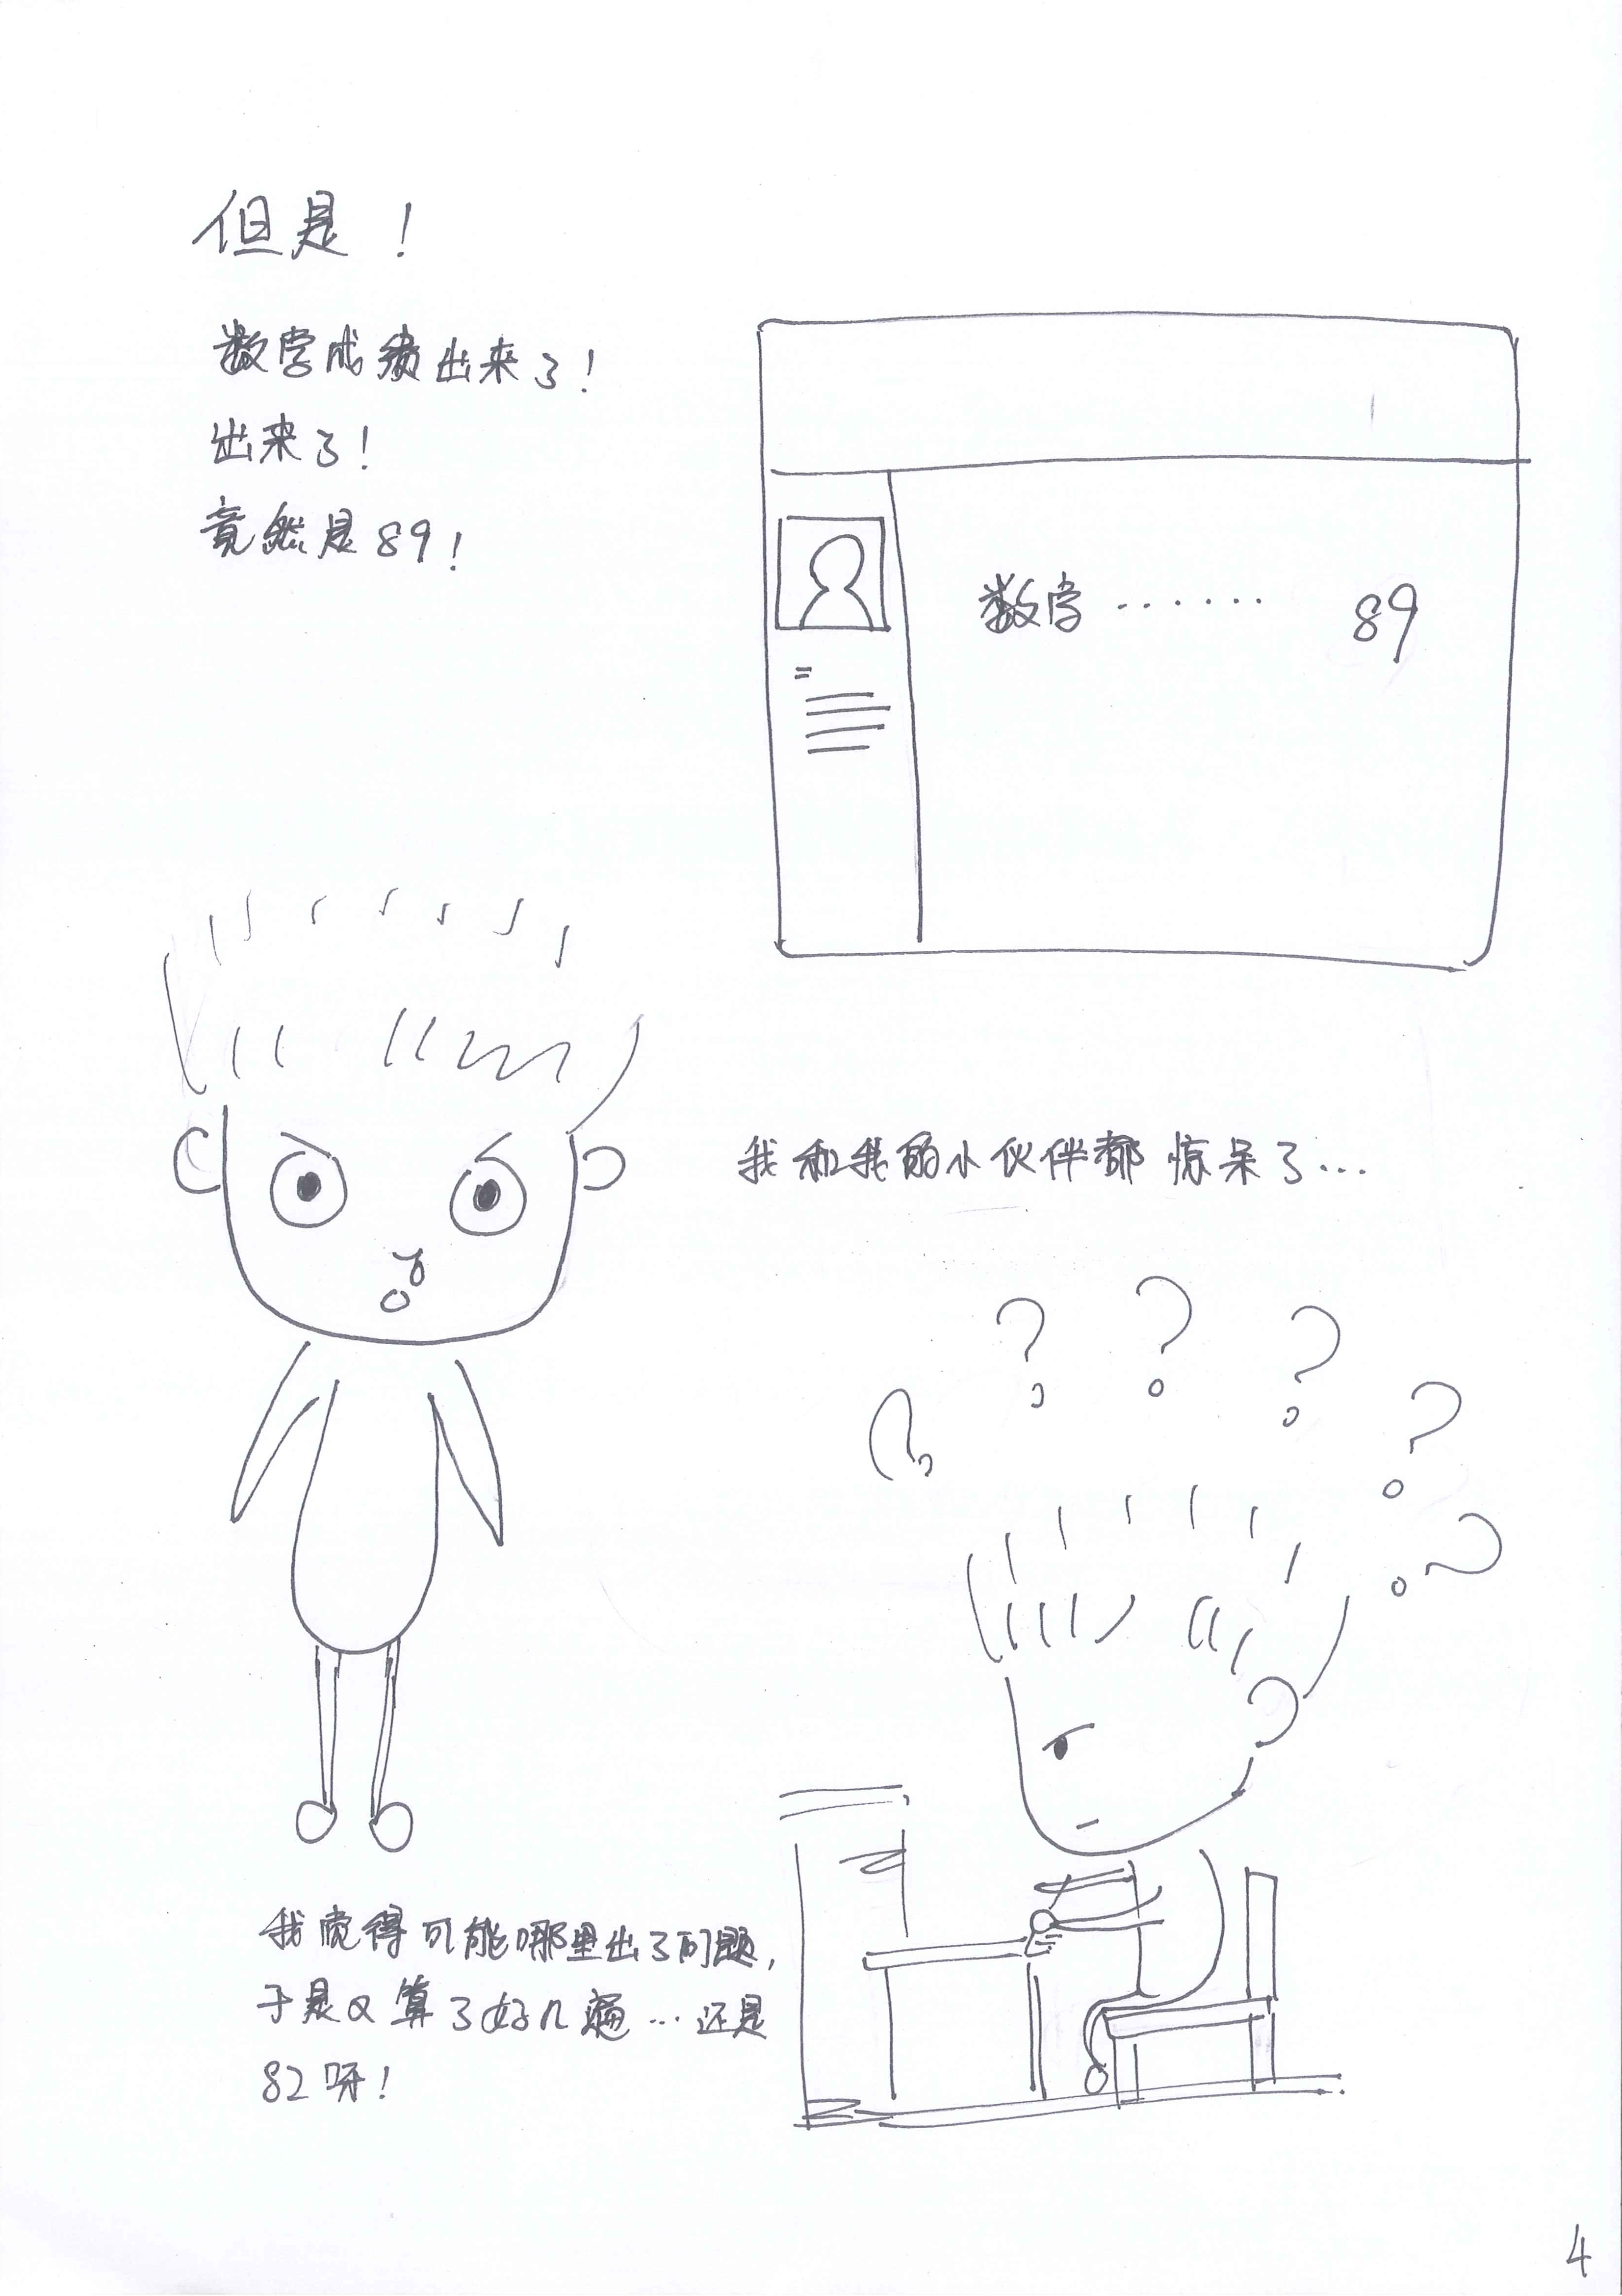 但是！
数学成绩出来了！
出来了！
竟然是89！
数学······ 89
我和我的小伙伴都惊呆了…
? ? ? ? ? ?
我觉得可能哪里出了问题，
于是又算了好几遍…还是
82呀！
4